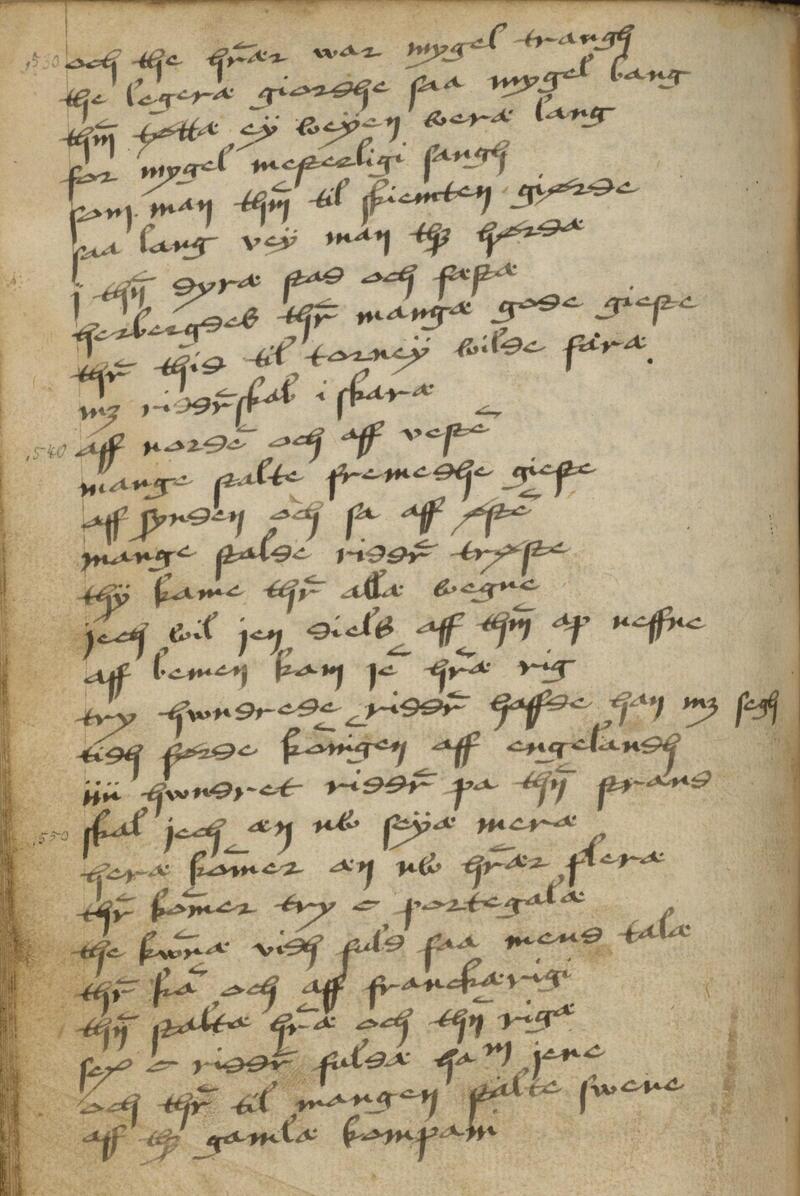 1530 och the hr̄ær war mygel trangh
the legeræ giordhe saa mygel bang
thm̄ tøttæ ey weyen weræ lang
for mygel mesterligi sangh
som man thm̄ til skiemten giørde
saa lang vey man thz hørdæ
i thn̄ dyræ stad och fæstæ
herbergdes thr̄ mangæ gode gieste
thr̄ thid til torney wilde faræ.
mz riddr̄skab i skaræ
1540 aff nordē och aff vestē
mange stalte fremedhe gieste
aff synden och sa aff østē
mange stalde riddr̄ trøste
thy kame thr̄ allæ wegne
jech wil jen diels aff thm̄ ap neffne
aff bemen kam jē hr̄æ rig
try hwndrede riddr̄ haffde han mz segh
tidh førde kōnīgen aff engelandh
iiii hwndret riddr̄ pa thn̄ strand
1550 skal jech æn nw seyæ meræ
heræ kōmer æn nw hr̄ær fleræ
thr̄ kōmer try c portegalæ
the kwn̄æ vidh fuld faa mend talæ
thr̄ kā och aff franckærigi
thn̄ staltæ hr̄æ och thn̄ rigæ
sex c riddr̄ fuldæ ham jene
och thr̄ til mangen stalte swene
aff thz gamlæ kompani